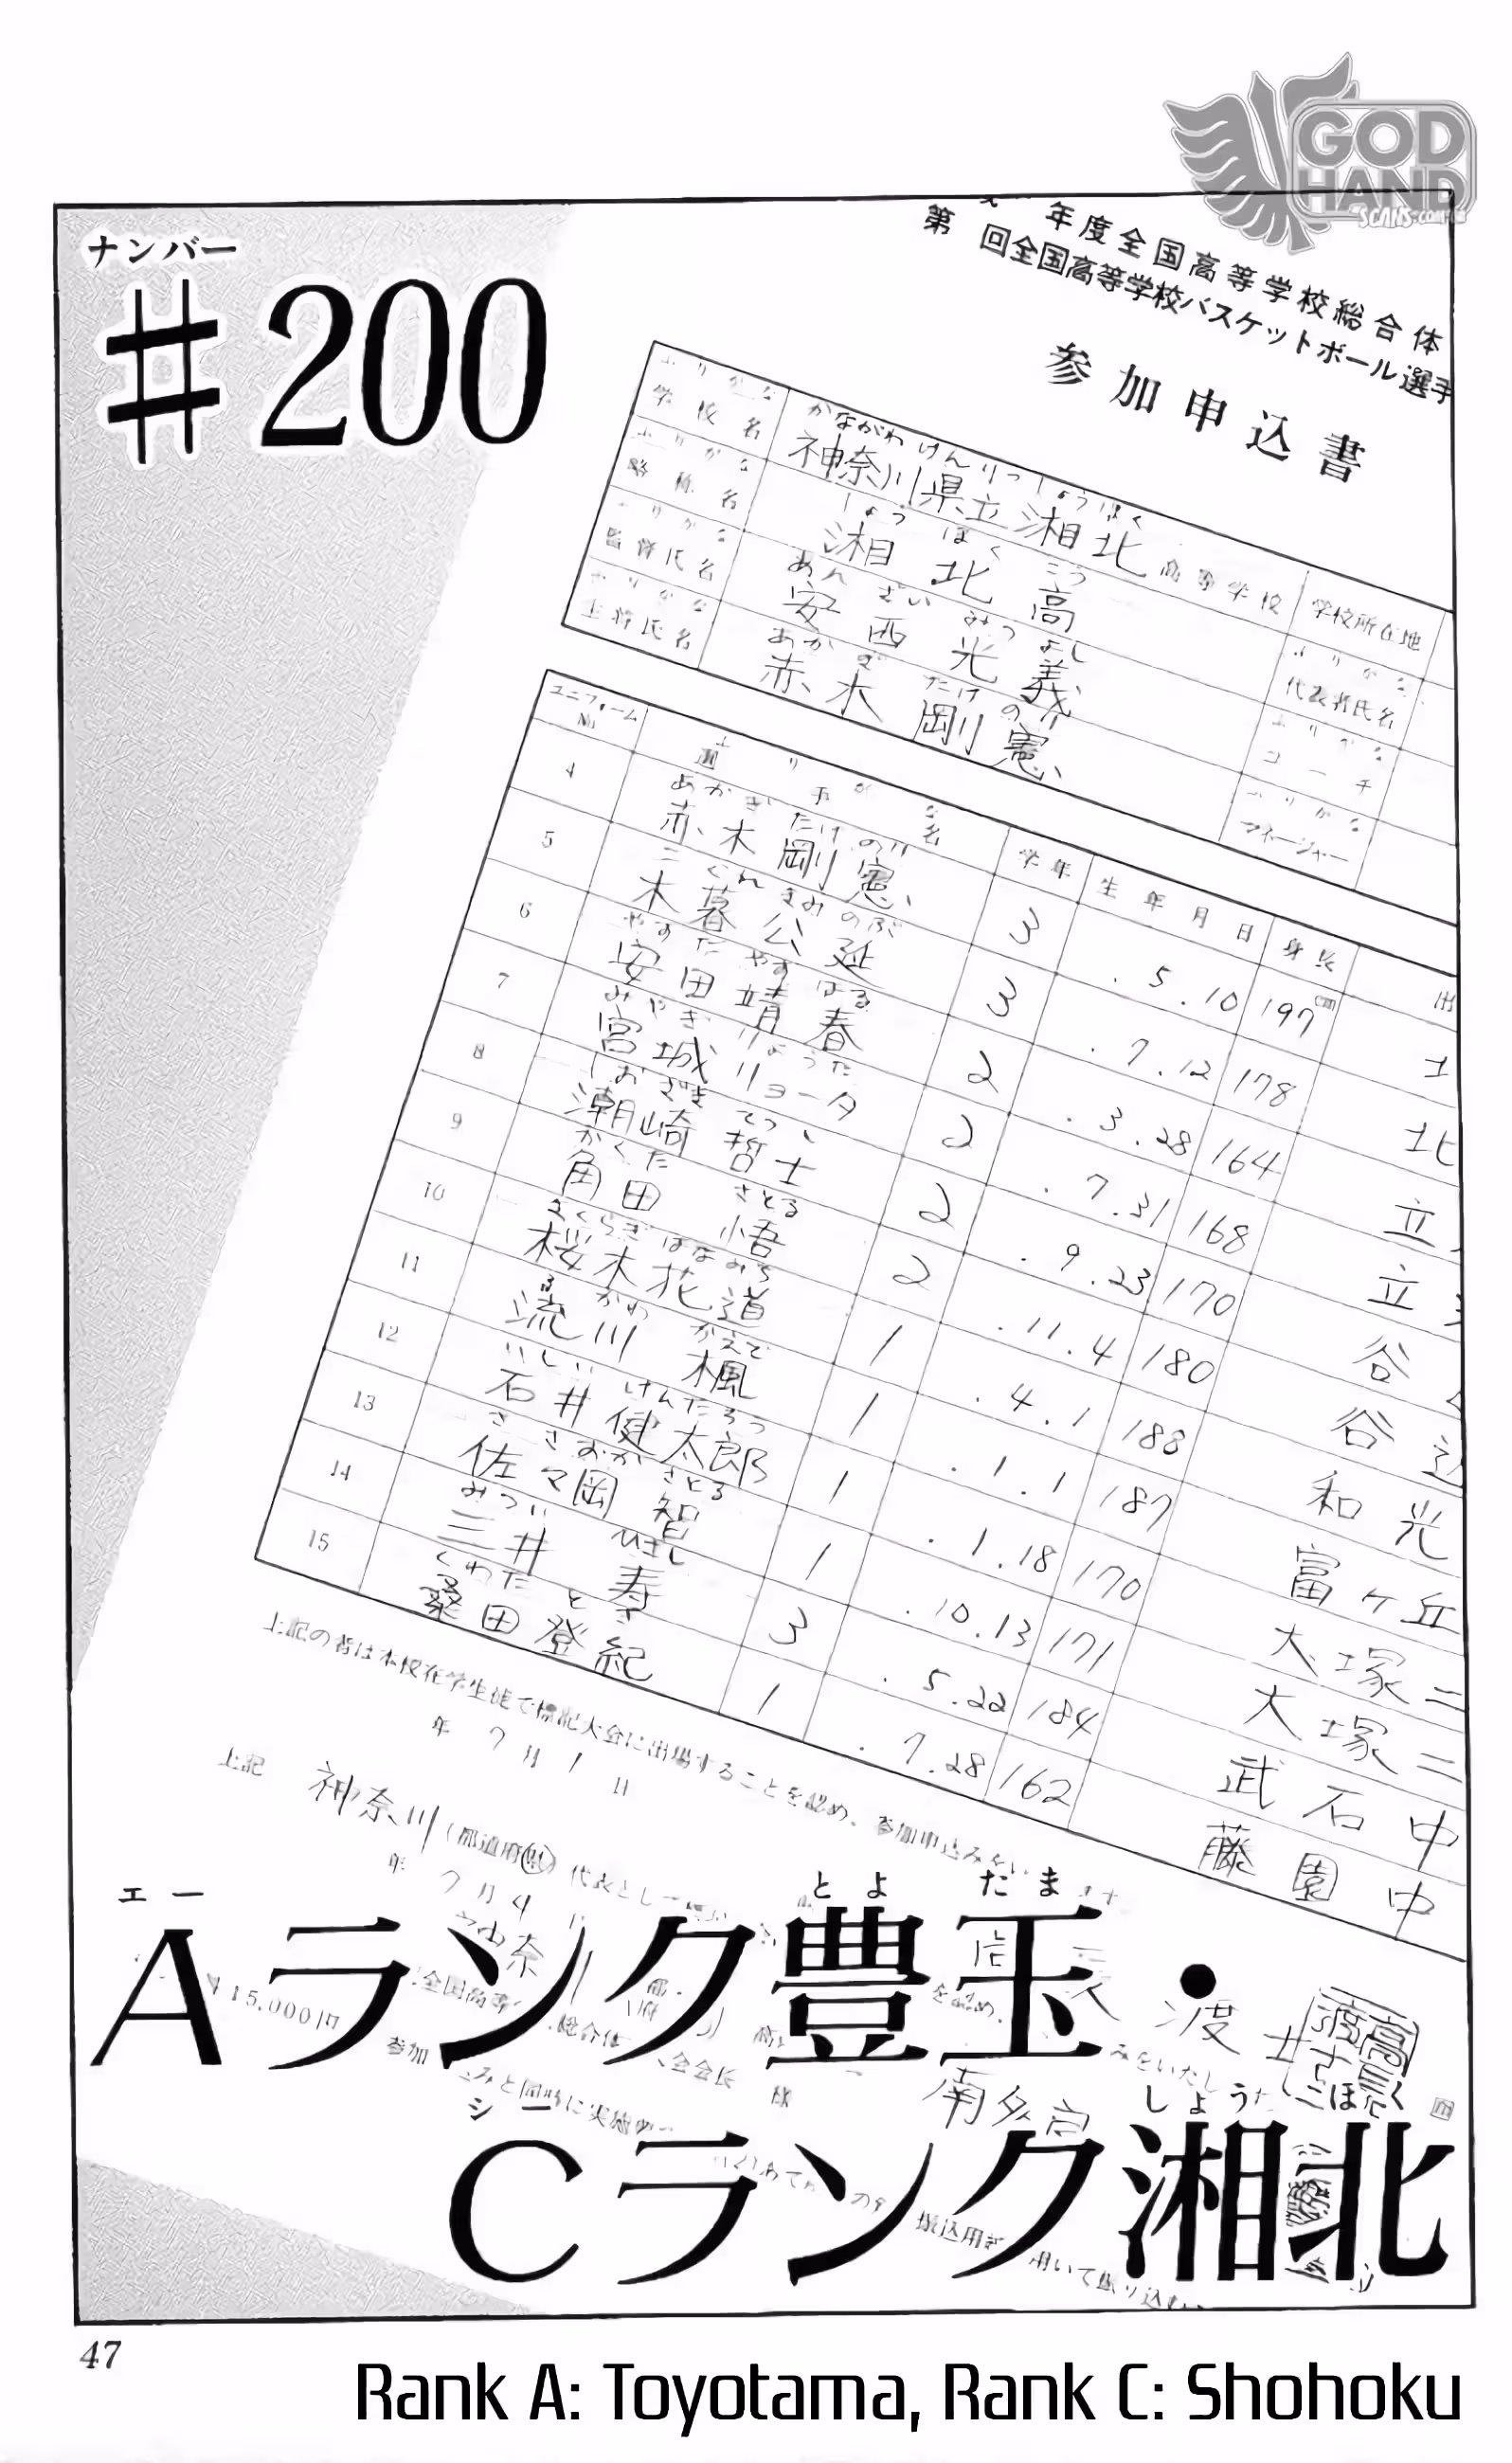 GOD
HAND
SCANS.COM
ナンバー
#200
年度全国高等学校総合体
第 回全国高等学校バスケットボール選手
参加申込書
ふりがな かながわけんりつしょうほく
学校名 神奈川県立湘北高等学校 学校所在地
ふりがな しょうほくこう ふりがな
略称名 湘北高 代表者氏名
ふりがな あんざいみつよし ふりがな
監督氏名 安西光義 コーチ
ふりがな あかぎたけのり ふりがな
主将氏名 赤木剛憲 マネージャー
ユニフォームNo. ふりがな 選手名 学年 生年月日 身長 出
あかぎたけのり
4 赤木剛憲 3 .5.10 197cm 北
こぐれきみのぶ
5 木暮公延 3 .7.12 178 北
やすだやすはる
6 安田靖春 2 .3.28 164 立
みやぎりょうた
7 宮城リョータ 2 .7.31 168 立
しおざきてつし
8 潮崎哲士 2 .9.23 170 谷
かくたさとる
9 角田悟 2 .11.4 180 谷
さくらぎはなみち
10 桜木花道 1 .4.1 188 和光
るかわかえで
11 流川楓 1 .1.1 187 富ヶ丘
いしいけんたろう
12 石井健太郎 1 .1.18 170 大塚二
ささおかさとる
13 佐々岡智 1 .10.13 171 大塚二
みついひさし
14 三井寿 3 .5.22 184 武石中
くわたとき
15 桑田登紀 1 .7.28 162 藤園中
上記の者は本校在学生徒で標記大会に出場することを認め、参加申込みをいたします
年 7月1日
上記 神奈川(都道府県)代表とし
年 7月4
エー とよたま
Aランク豊玉・
全国高等 総合体 大会会長 様
15,000円 参加 みと同時に実施
南
シー しょうほく
Cランク湘北
振込用 用いて振り込
47
Rank A: Toyotama, Rank C: Shohoku